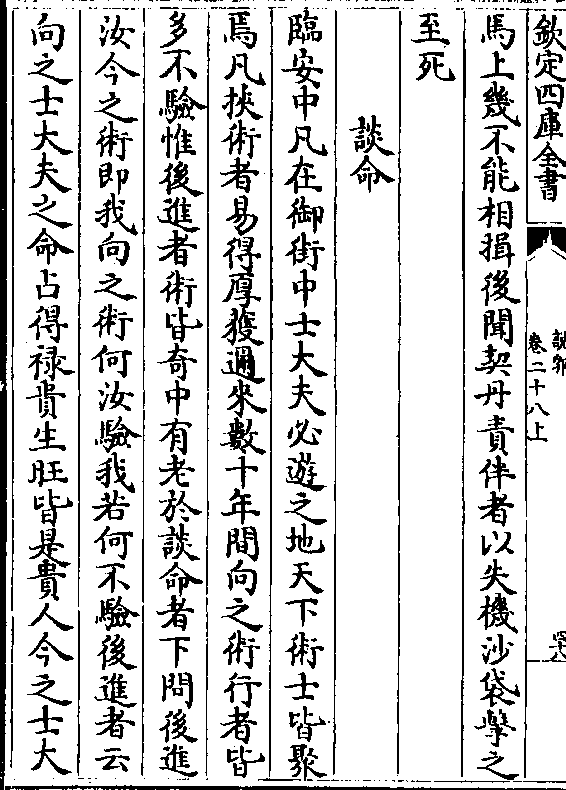 欽定四庫全書
說郛
卷二十八上
馬上幾不能相揖後聞契丹責伴者以失機沙袋擊之
至死
談命
臨安中凡在御街中士大夫必遊之地天下術士皆聚
焉凡挾術者易得厚獲邇來數十年間向之術行者皆
多不驗惟後進者術皆奇中有老於談命者下問後進
汝今之術即我向之術何汝驗我若何不驗後進者云
向之士大夫之命占得祿貴生旺皆是貴人今之士大